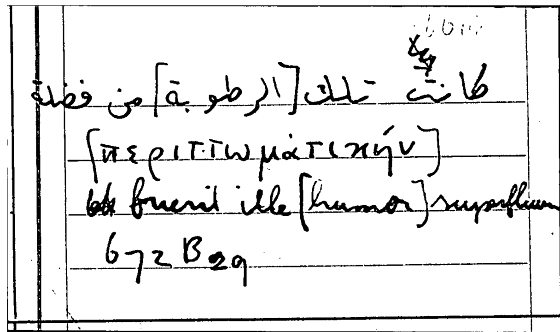 كانت تلك [الرطوبة] من فضلة
[περιττωματικήν]
fuerit ille [humor] superfluus
672 B 29